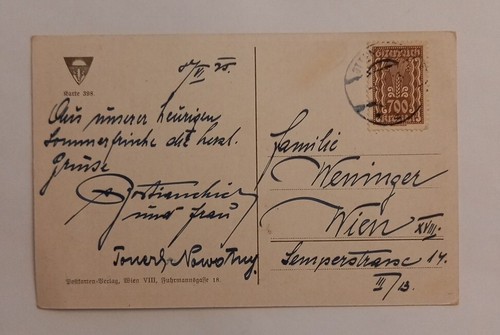 Karte 398
VI 25.
Aus unserer heurigen
Sommerfrische die herzl.
Grüsse
und Frau
Nowotny.
Postkarten-Verlag, Wien VIII, Fuhrmannsgasse 18.
Österreich
700
Kronen
Familie
Weninger
Wien
XVIII.
Semperstrasse 14.
III/13.